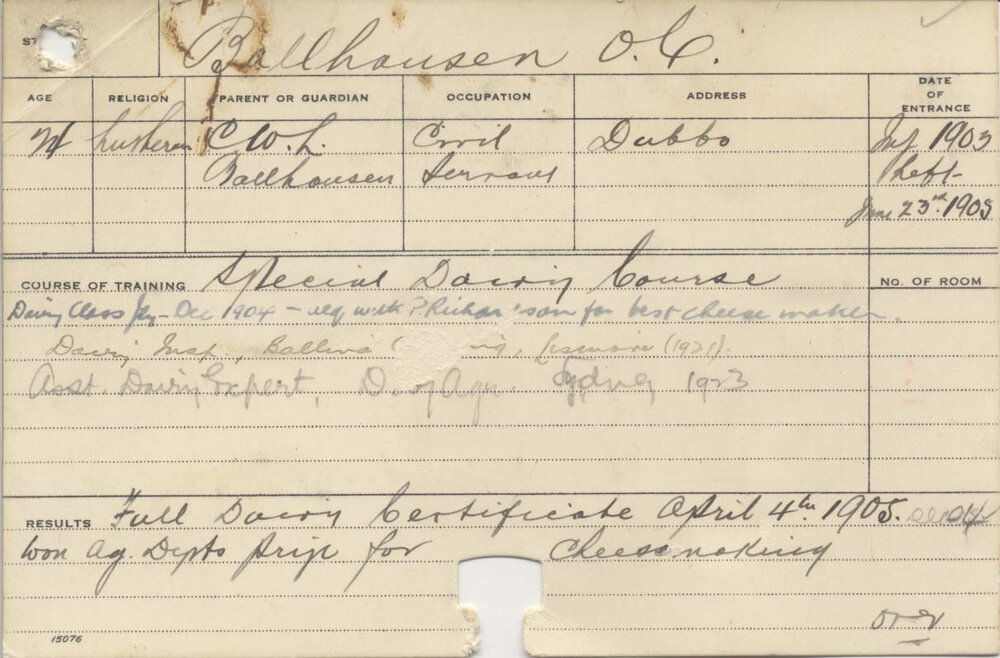 Ballhausen O. C.
AGE RELIGION PARENT OR GUARDIAN OCCUPATION ADDRESS DATE OF ENTRANCE
Lutheran C. W. L. Civil Dubbo 1903
Ballhausen Servant left
June 23rd. 1905
COURSE OF TRAINING Special Dairy Course NO. OF ROOM
Dairy Class Dec 1904 - with P. Richar'son for best cheese maker.
Dairy Insp., Ballina Lismore (1921).
Asst. Dairy Expert, D. of Agr. Sydney 1923
RESULTS Full Dairy Certificate April 4th 1905.
Won Ag. Depts prize for cheesemaking
over
15076